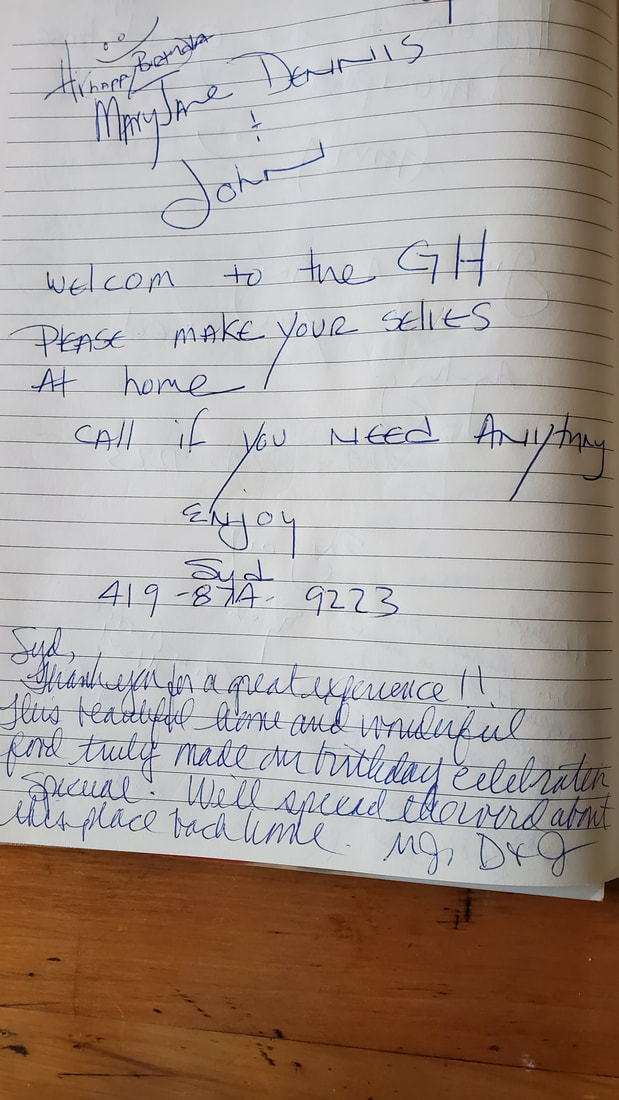 Happy Birthday
MaryJane Dennis
+
John
Welcom to the GH
PLEASE MAKE YOUR SELVES
At home
CAll if you NEEd ANythng
ENjoy
Syd
419-87A- 9223
Syd,
Thank you for a great experience!!
This beautiful home and wonderful
food truly made our birthday celebration
special. We'll spread the word about
this place back home. MJ, D & J